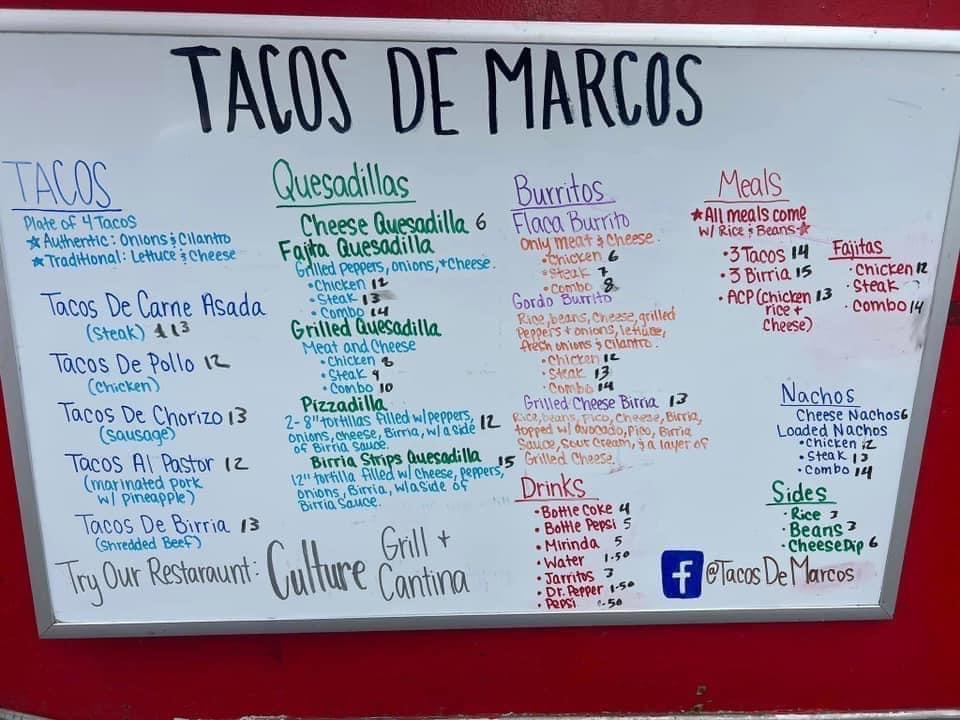 TACOS DE MARCOS
TACOS
Plate of 4 Tacos
★ Authentic: Onions & Cilantro
★ Traditional: Lettuce & Cheese
Tacos De Carne Asada
(Steak) 13
Tacos De Pollo 12
(Chicken)
Tacos De Chorizo 13
(sausage)
Tacos Al Pastor 12
(marinated pork
w/ pineapple)
Tacos De Birria 13
(Shredded Beef)
Quesadillas
Cheese Quesadilla 6
Fajita Quesadilla
Grilled peppers, onions, + cheese.
• Chicken 12
• Steak 13
• Combo 14
Grilled Quesadilla
Meat and Cheese
• Chicken 8
• Steak 9
• Combo 10
Pizzadilla
2- 8" tortillas filled w/ peppers, 12
onions, cheese, Birria, w/ a side
of Birria sauce.
Birria Strips Quesadilla 15
12" tortilla filled w/ Cheese, peppers,
onions, Birria, w/a side of
Birria Sauce.
Burritos
Flaca Burrito
Only meat & Cheese.
• Chicken 6
• Steak 7
• Combo 8
Gordo Burrito
Rice, beans, cheese, grilled
Peppers + onions, lettuce,
fresh onions & cilantro.
• Chicken 12
• Steak 13
• Combo 14
Grilled Cheese Birria 13
Rice, beans, Pico, Cheese, Birria,
topped w/ avocado, Pico, Birria
Sauce, Sour Cream, & a layer of
Grilled Cheese.
Drinks
• Bottle Coke 4
• Bottle Pepsi 5
• Mirinda 5
• Water 1.50
• Jarritos 3
• Dr. Pepper 1.50
• Pepsi .50
Meals
★ All meals come
w/ Rice & Beans ★
• 3 Tacos 14
• 3 Birria 15
• ACP (chicken 13
rice +
cheese)
Fajitas
• Chicken 12
• Steak
• Combo 14
Nachos
Cheese Nachos 6
Loaded Nachos
• Chicken 12
• Steak 13
• Combo 14
Sides
• Rice 3
• Beans 3
• Cheese Dip 6
Try Our Restaraunt: Culture Grill +
Cantina
f @TacosDeMarcos